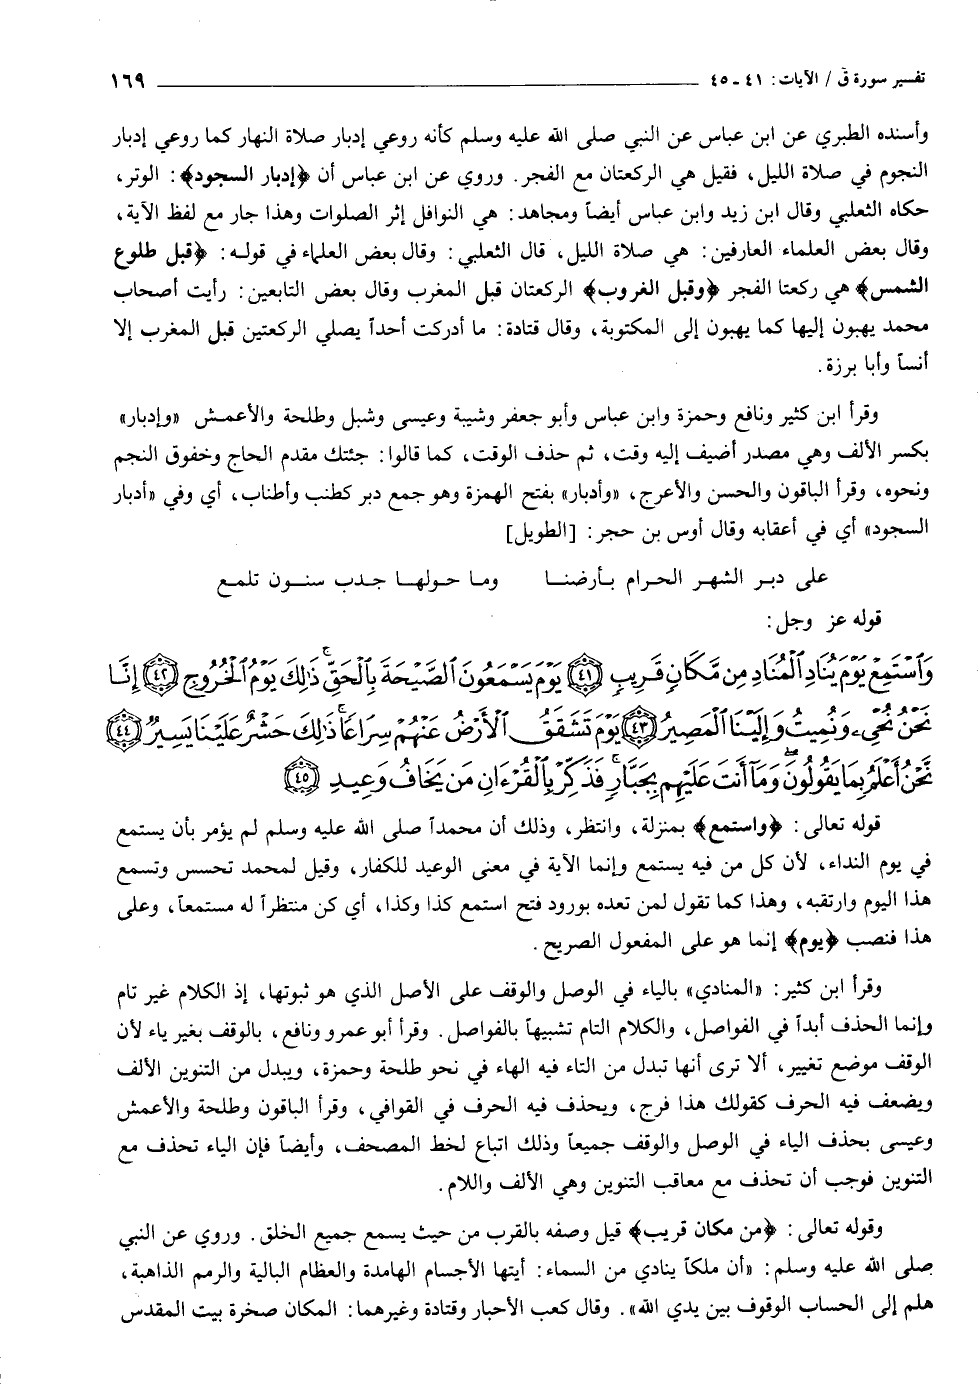 تفسير سورة ق / الآيات: ٤١ - ٤٥ ١٦٩
وأسنده الطبري عن ابن عباس عن النبي صلى الله عليه وسلم كأنه روعي إدبار صلاة النهار كما روعي إدبار
النجوم في صلاة الليل، فقيل هي الركعتان مع الفجر. وروي عن ابن عباس أن ﴿إدبار السجود﴾: الوتر،
حكاه الثعلبي وقال ابن زيد وابن عباس أيضاً ومجاهد: هي النوافل إثر الصلوات وهذا جار مع لفظ الآية،
وقال بعض العلماء العارفين: هي صلاة الليل، قال الثعلبي: وقال بعض العلماء في قوله: ﴿قبل طلوع
الشمس﴾ هي ركعتا الفجر ﴿وقبل الغروب﴾ الركعتان قبل المغرب وقال بعض التابعين: رأيت أصحاب
محمد يهبون إليها كما يهبون إلى المكتوبة، وقال قتادة: ما أدركت أحداً يصلي الركعتين قبل المغرب إلا
أنساً وأبا برزة.
وقرأ ابن كثير ونافع وحمزة وابن عباس وأبو جعفر وشيبة وعيسى وشبل وطلحة والأعمش «وإدبار»
بكسر الألف وهي مصدر أضيف إليه وقت، ثم حذف الوقت، كما قالوا: جئتك مقدم الحاج وخفوق النجم
ونحوه، وقرأ الباقون والحسن والأعرج، «وأدبار» بفتح الهمزة وهو جمع دبر كطنب وأطناب، أي وفي «أدبار
السجود» أي في أعقابه وقال أوس بن حجر: [الطويل]
على دبر الشهر الحرام بأرضنا وما حولها جدب سنون تلمع
قوله عز وجل:
وَٱسْتَمِعْ يَوْمَ يُنَادِ ٱلْمُنَادِ مِن مَّكَانٍ قَرِيبٍ ﴿٤١﴾ يَوْمَ يَسْمَعُونَ ٱلصَّيْحَةَ بِٱلْحَقِّ ۚ ذَٰلِكَ يَوْمُ ٱلْخُرُوجِ ﴿٤٢﴾ إِنَّا
نَحْنُ نُحْىِۦ وَنُمِيتُ وَإِلَيْنَا ٱلْمَصِيرُ ﴿٤٣﴾ يَوْمَ تَشَقَّقُ ٱلْأَرْضُ عَنْهُمْ سِرَاعًا ۚ ذَٰلِكَ حَشْرٌ عَلَيْنَا يَسِيرٌ ﴿٤٤﴾
نَّحْنُ أَعْلَمُ بِمَا يَقُولُونَ ۖ وَمَآ أَنتَ عَلَيْهِم بِجَبَّارٍ ۖ فَذَكِّرْ بِٱلْقُرْءَانِ مَن يَخَافُ وَعِيدِ ﴿٤٥﴾
قوله تعالى: ﴿واستمع﴾ بمنزلة، وانتظر، وذلك أن محمداً صلى الله عليه وسلم لم يؤمر بأن يستمع
في يوم النداء، لأن كل من فيه يستمع وإنما الآية في معنى الوعيد للكفار، وقيل لمحمد تحسس وتسمع
هذا اليوم وارتقبه، وهذا كما تقول لمن تعده بورود فتح استمع كذا وكذا، أي كن منتظراً له مستمعاً، وعلى
هذا فنصب ﴿يوم﴾ إنما هو على المفعول الصريح.
وقرأ ابن كثير: «المنادي» بالياء في الوصل والوقف على الأصل الذي هو ثبوتها، إذ الكلام غير تام
وإنما الحذف أبداً في الفواصل، والكلام التام تشبيهاً بالفواصل. وقرأ أبو عمرو ونافع، بالوقف بغير ياء لأن
الوقف موضع تغيير، ألا ترى أنها تبدل من التاء فيه الهاء في نحو طلحة وحمزة، ويبدل من التنوين الألف
ويضعف فيه الحرف كقولك هذا فرج، ويحذف فيه الحرف في القوافي، وقرأ الباقون وطلحة والأعمش
وعيسى بحذف الياء في الوصل والوقف جميعاً وذلك اتباع لخط المصحف، وأيضاً فإن الياء تحذف مع
التنوين فوجب أن تحذف مع معاقب التنوين وهي الألف واللام.
وقوله تعالى: ﴿من مكان قريب﴾ قيل وصفه بالقرب من حيث يسمع جميع الخلق. وروي عن النبي
صلى الله عليه وسلم: «أن ملكاً ينادي من السماء: أيتها الأجسام الهامدة والعظام البالية والرمم الذاهبة،
هلم إلى الحساب الوقوف بين يدي الله». وقال كعب الأحبار وقتادة وغيرهما: المكان صخرة بيت المقدس